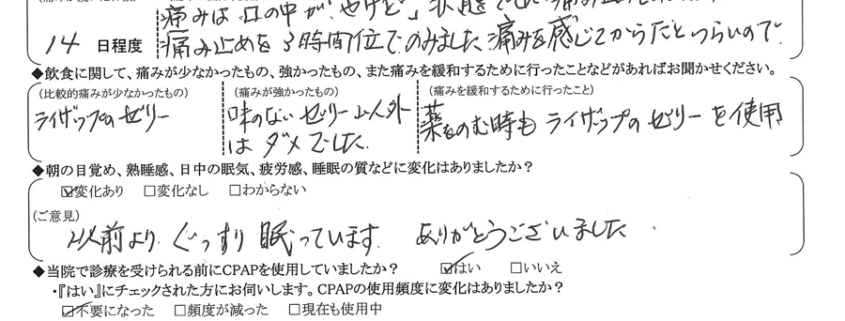 痛みは口の中が「やけど」状態で
14 日程度 痛み止めを3時間位でのみました 痛みを感じてからだとつらいので
◆飲食に関して、痛みが少なかったもの、強かったもの、また痛みを緩和するために行ったことなどがあればお聞かせください。
(比較的痛みが少なかったもの) (痛みが強かったもの) (痛みを緩和するために行ったこと)
ライザップのゼリー 味のないゼリー以外はダメでした 薬をのむ時もライザップのゼリーを使用
◆朝の目覚め、熟睡感、日中の眠気、疲労感、睡眠の質などに変化はありましたか？
☑変化あり □変化なし □わからない
(ご意見)
以前より ぐっすり眠っています ありがとうございました
◆当院で診療を受けられる前にCPAPを使用していましたか？ ☑はい □いいえ
・『はい』にチェックされた方にお伺いします。CPAPの使用頻度に変化はありましたか？
☑不要になった □頻度が減った □現在も使用中